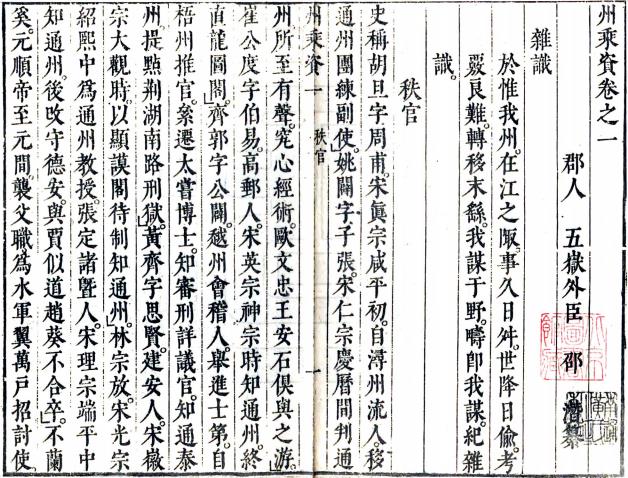 州乘資卷之一
郡人 五嶽外臣 邵 潛纂
雜識
於惟我州。在江之陬。事久日舛。世降日偷。考
覈良難。轉移末繇。我謀于野。疇卽我謀。紀雜
識。
秩官
史稱胡旦字周甫。宋眞宗咸平初。自潯州流人移
通州團練副使。姚闢字子張。宋仁宗慶曆間判通
州乘資一 秩官 一
州所至有聲。究心經術。歐文忠王安石俱與之游。
崔公度字伯易。高郵人。宋英宗神宗時知通州。終
直龍圖閣。齊郭字公闢。越州會稽人。舉進士第。自
梧州推官。絫遷太嘗博士。知審刑詳議官。知通泰
州提點荆湖南路刑獄。黃齊字思賢。建安人。宋徽
宗大觀時。以顯謨閣待制知通州。林宗放。宋光宗
紹熙中爲通州教授。張定諸暨人。宋理宗端平中
知通州。後改守德安。與賈似道趙葵不合卒。不蘭
奚。元順帝至元間襲父職爲水軍翼萬戶招討使